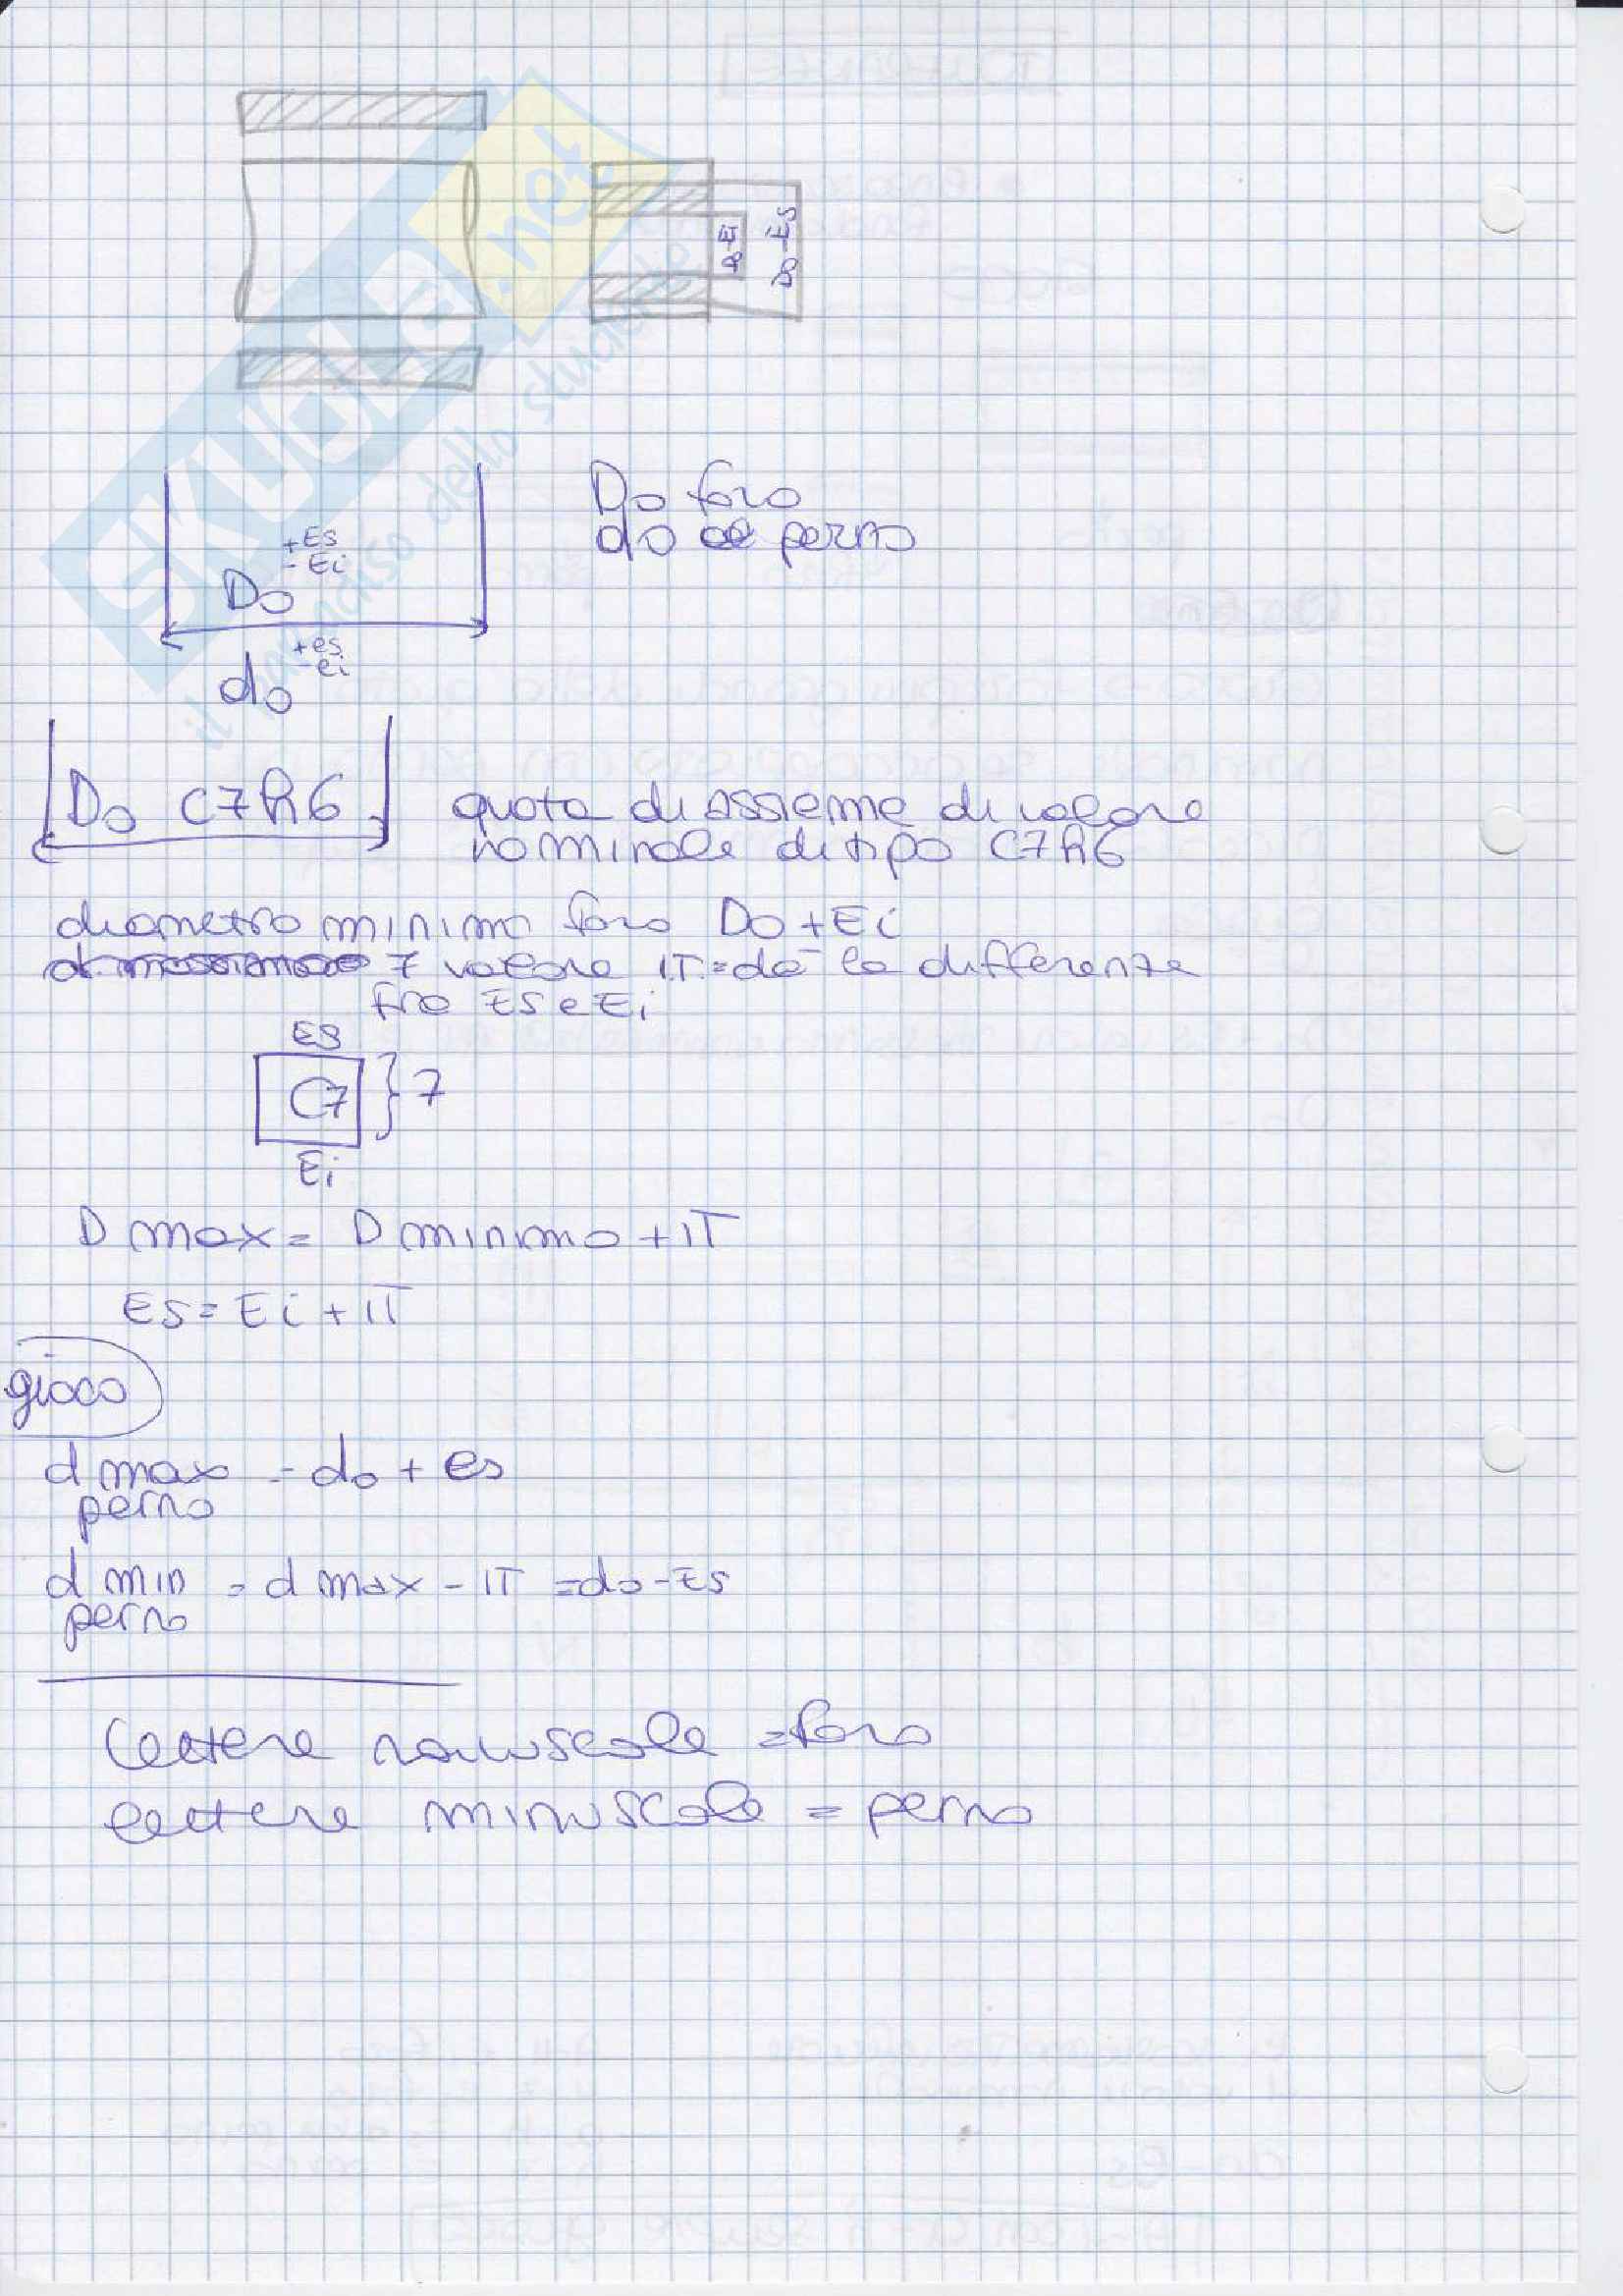 SKUOLA.net
il paradiso dello studente
Do-Ei
Do-Es
Do foro
do perno
Do +Es -Ei
do +es -ei
Do C7h6
quota di assieme di valore
nominale di tipo C7h6
diametro minimo foro Do+Ei
7 valore IT=dà la differenza
fra ES e Ei
ES
C7 } 7
Ei
D max= D minimo + IT
ES= Ei + IT
gioco
d max = do + es
perno
d min = d max - IT = do-Es
perno
Lettere maiuscole = foro
lettere minuscole = perno